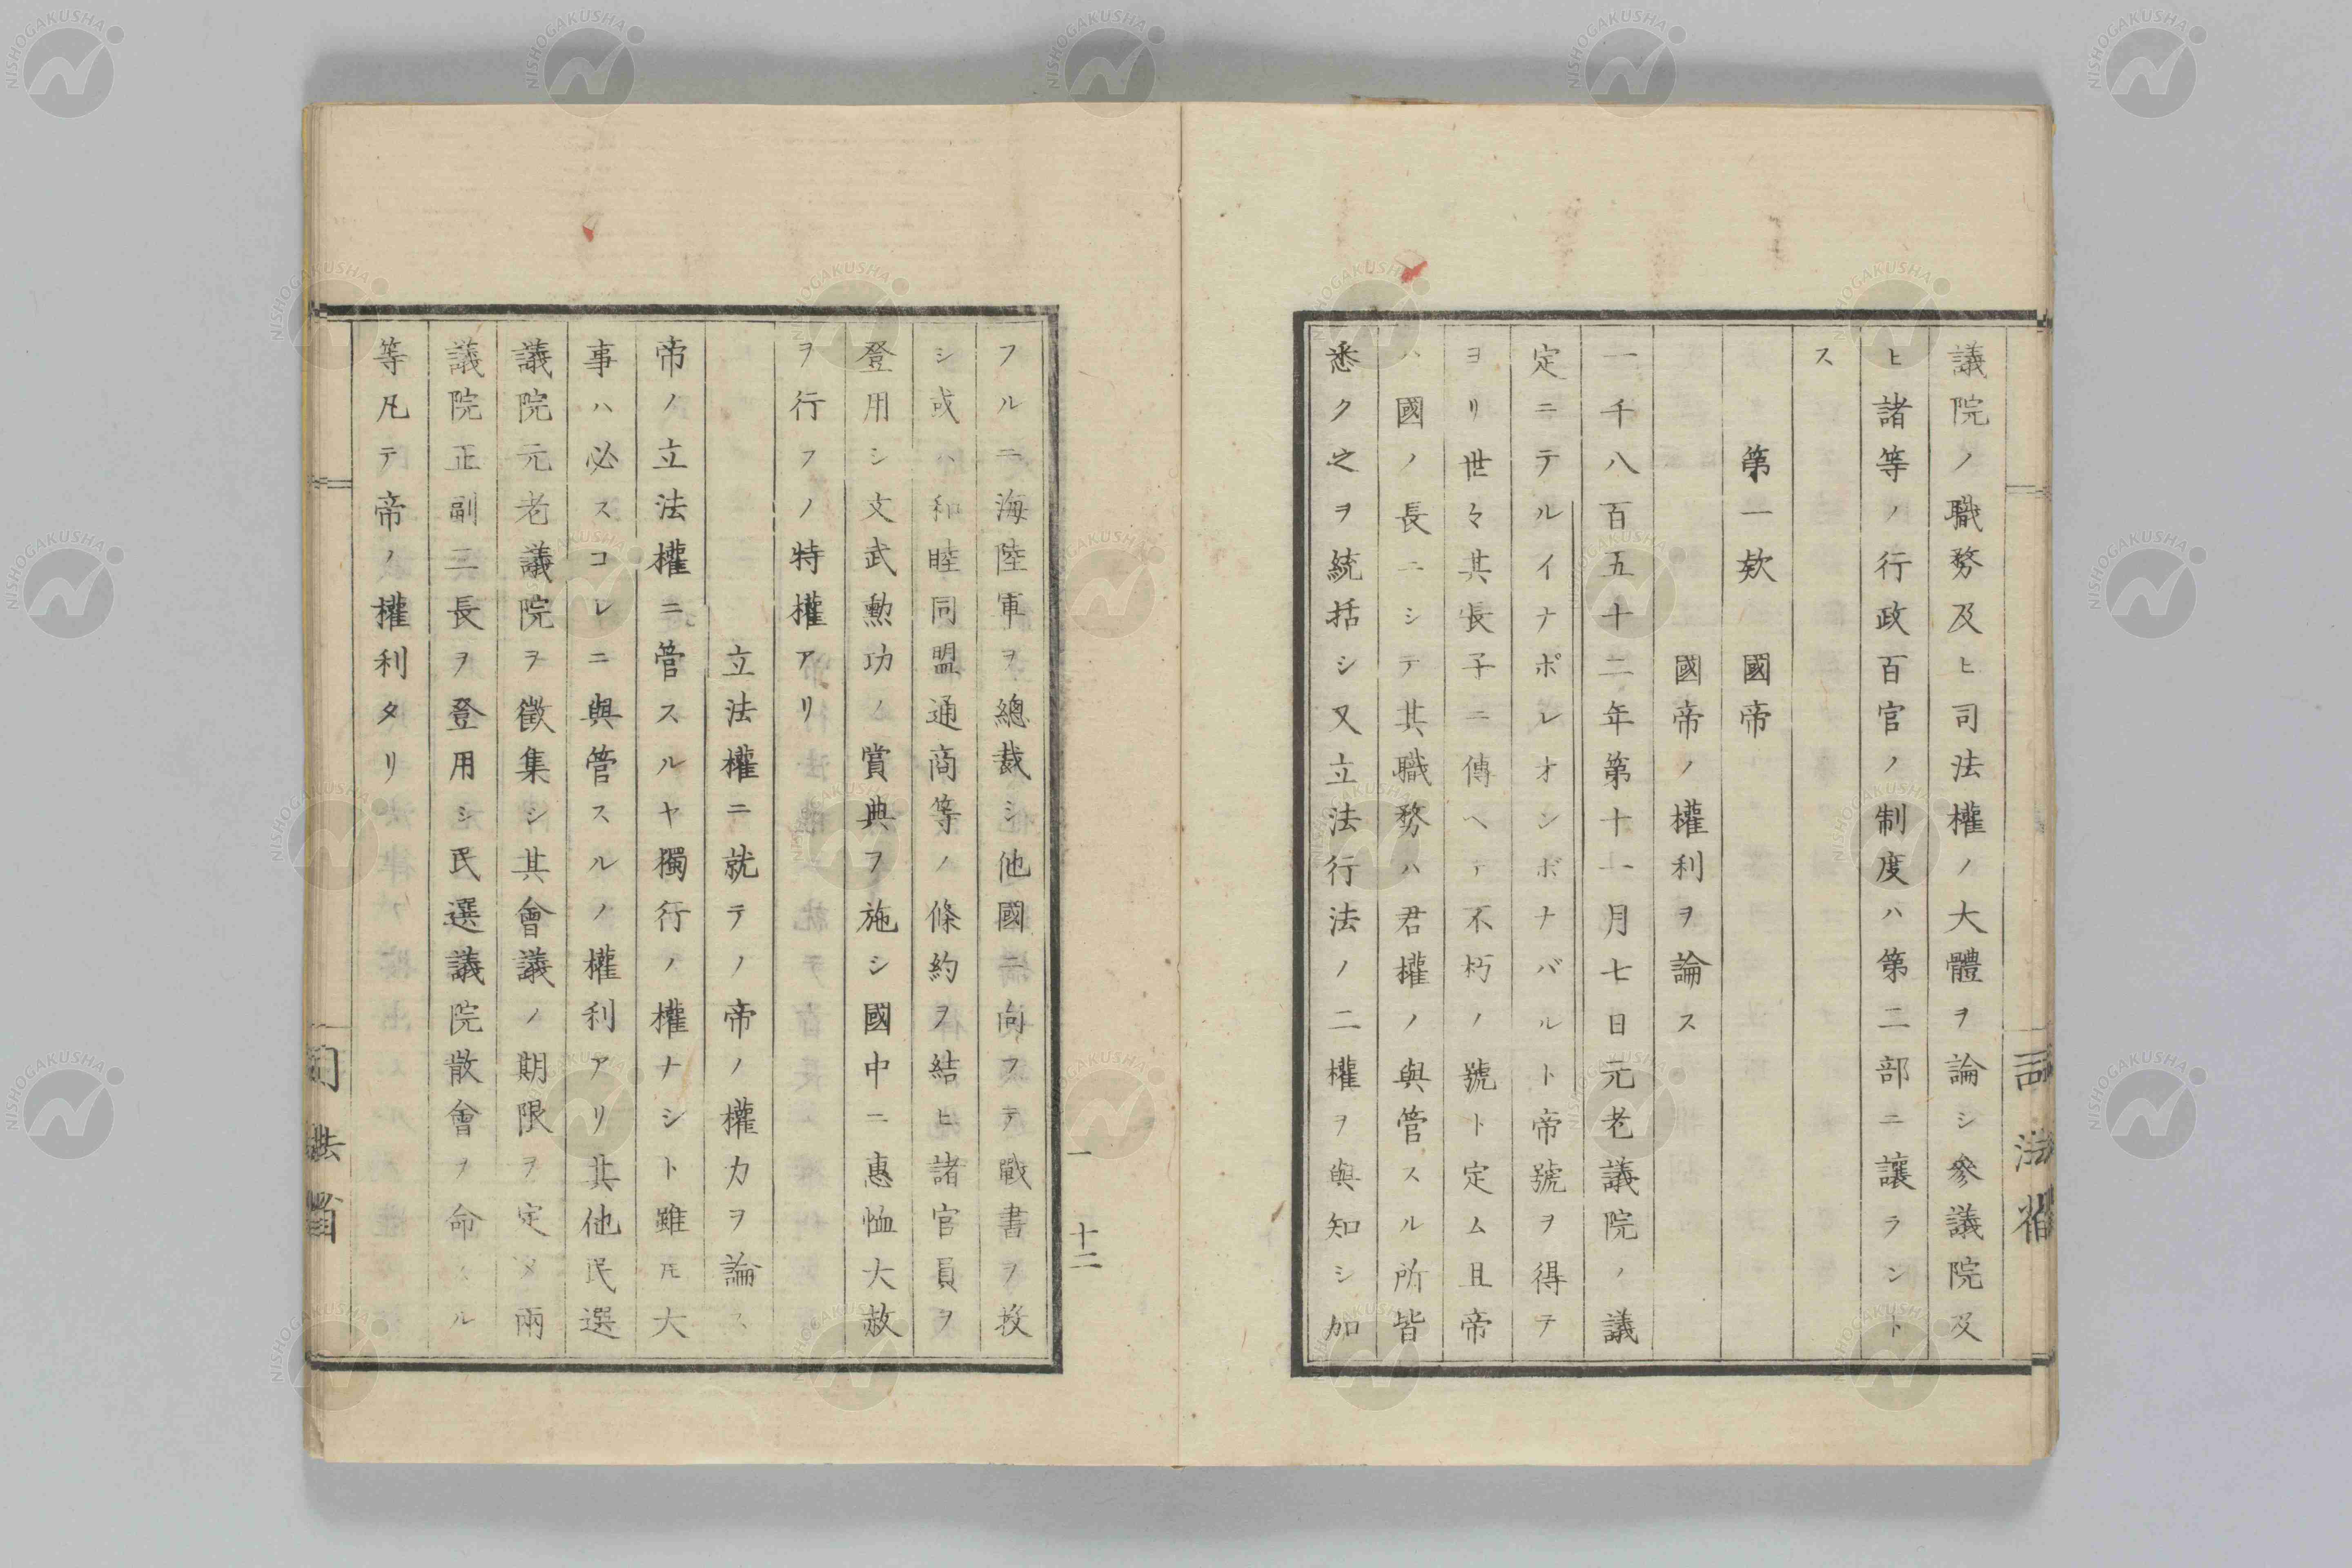 議院ノ職務及ヒ司法權ノ大體ヲ論シ參議院及
ヒ諸等ノ行政百官ノ制度ハ第二部ニ讓ラント
ス
第一欸 國帝
國帝ノ權利ヲ論ス
一千八百五十二年第十一月七日元老議院ノ議
定ニテルイナポレオンボナバルト帝號ヲ得テ
ヨリ世々其長子ニ傳ヘテ不朽ノ號ト定ム且帝
ハ國ノ長ニシテ其職務ハ君權ノ與管スル所皆
悉ク之ヲ統括シ又立法行法ノ二權ヲ與知シ加
フルニ海陸軍ヲ總裁シ他國ニ向フテ戰書ヲ投
シ或ハ和睦同盟通商等ノ條約ヲ結ヒ諸官員ヲ
登用シ文武勲功ノ賞典ヲ施シ國中ニ惠恤大赦
ヲ行フノ特權アリ
立法權ニ就テノ帝ノ權力ヲ論ス
帝ノ立法權ニ管スルヤ獨行ノ權ナシト雖𪜈大
事ハ必スコレニ與管スルノ權利アリ其他民選
議院元老議院ヲ徵集シ其會議ノ期限ヲ定メ兩
議院正副二長ヲ登用シ民選議院散會ヲ命スル
等凡テ帝ノ權利タリ
一 十二
司法省
司法省
NISHOGAKUSHA